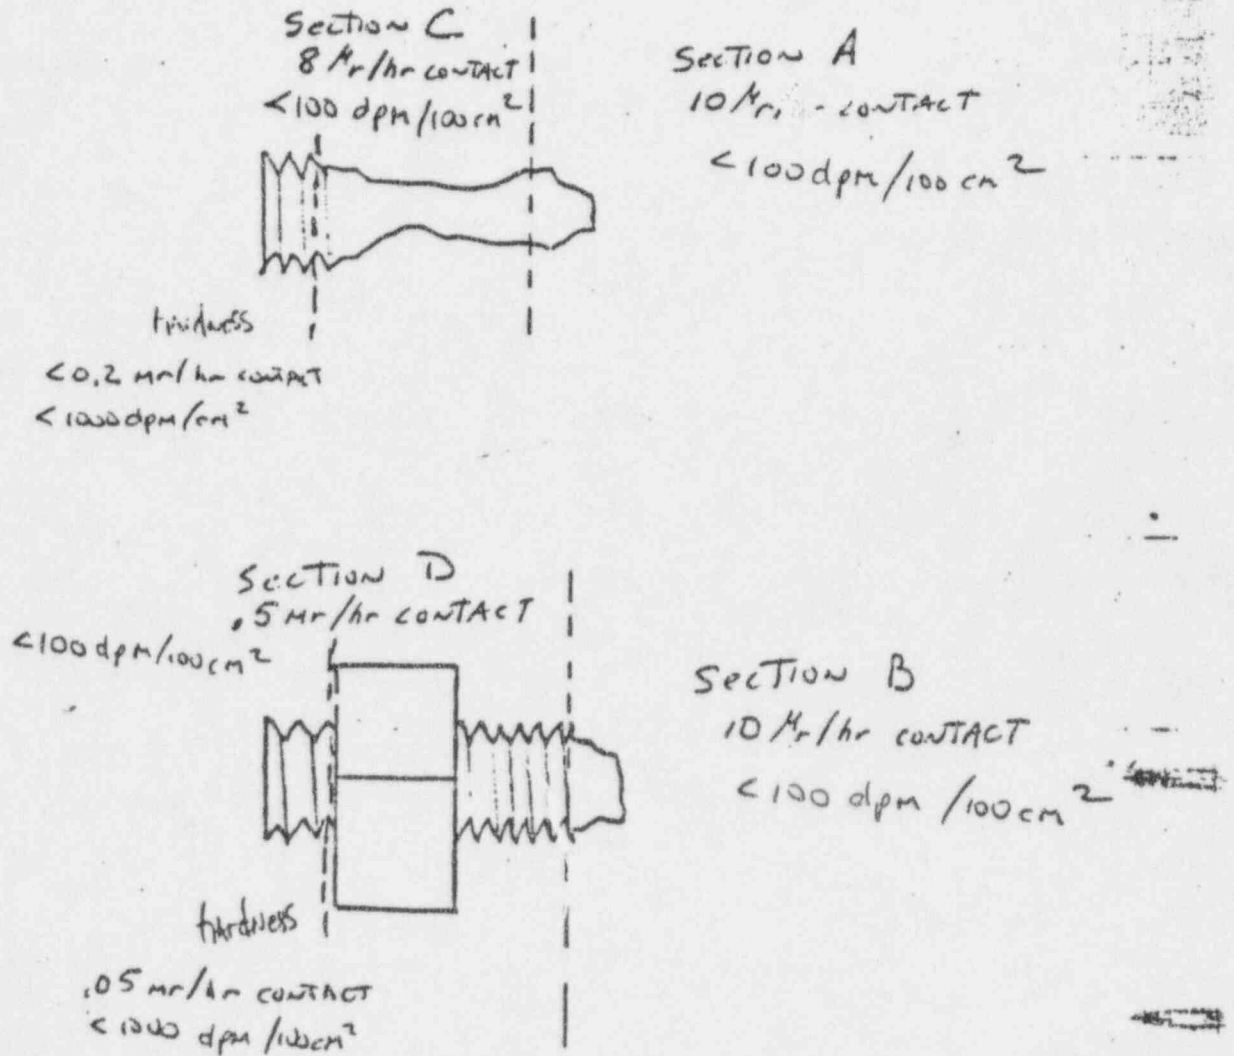 Section C
8 μr/hr CONTACT
<100 dpm/100cm²
Section A
10 μr, - CONTACT
<100dpm/100 cm²
hardness
<0.2 mr/hr CONTACT
<1000dpm/cm²
Section D
.5 mr/hr CONTACT
<100dpm/100cm²
Section B
10 μr/hr CONTACT
<100 dpm /100cm²
hardness
.05 mr/hr CONTACT
<1000 dpm /100cm²